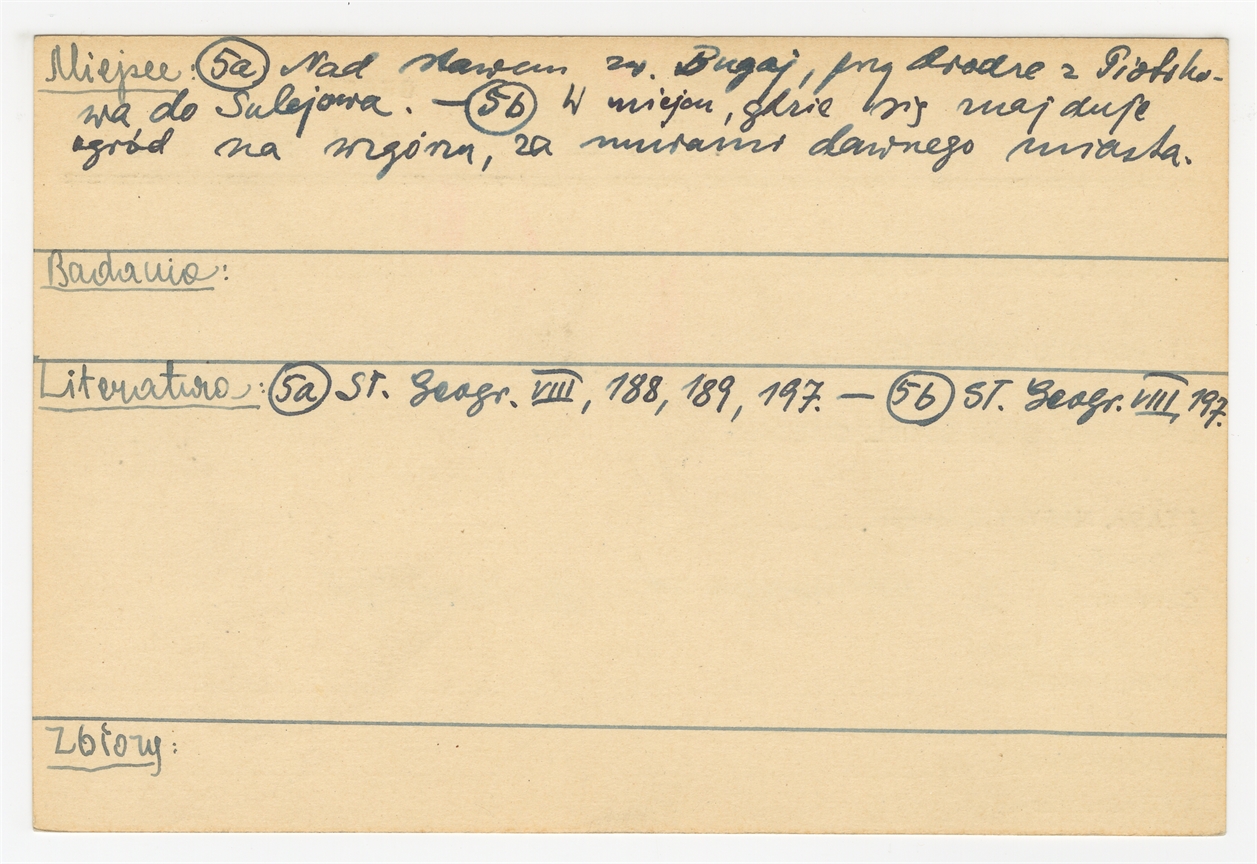 Miejsce: 5a Nad stawem zw. Bugaj, przy drodze z Piotrko-
wa do Sulejowa. — 5b W miejscu, gdzie się znajduje
ogród na wzgórzu, za murami dawnego miasta.
Badania:
Literatura: 5a Sł. Geogr. VIII, 188, 189, 197. — 5b Sł. Geogr. VIII, 197.
Zbiory: